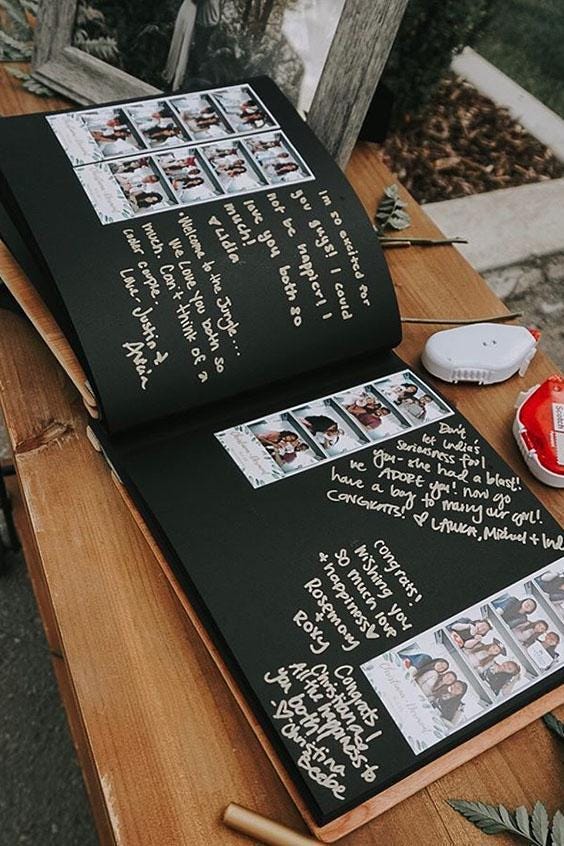 I'm so excited for
you guys! I could
not be happier! I
love you both so
much!
♥ Lidia
Welcome to the Jungle...
We Love you both so
much. Can't think of a
cooler couple.
Love Justin +
Don't
let India's
seriousness fool
you - she had a blast!
we ADORE you! now go
have a boy to marry our girl!
CONGRATS! ♡ LAURA, Michael + Ind
Congrats!
Wishing you
so much love
+ happiness ♥
Rosemary
+
Roxy
Congrats
Christina
All the happiness to
you both!
♡ Christina
Beebe
Scotch